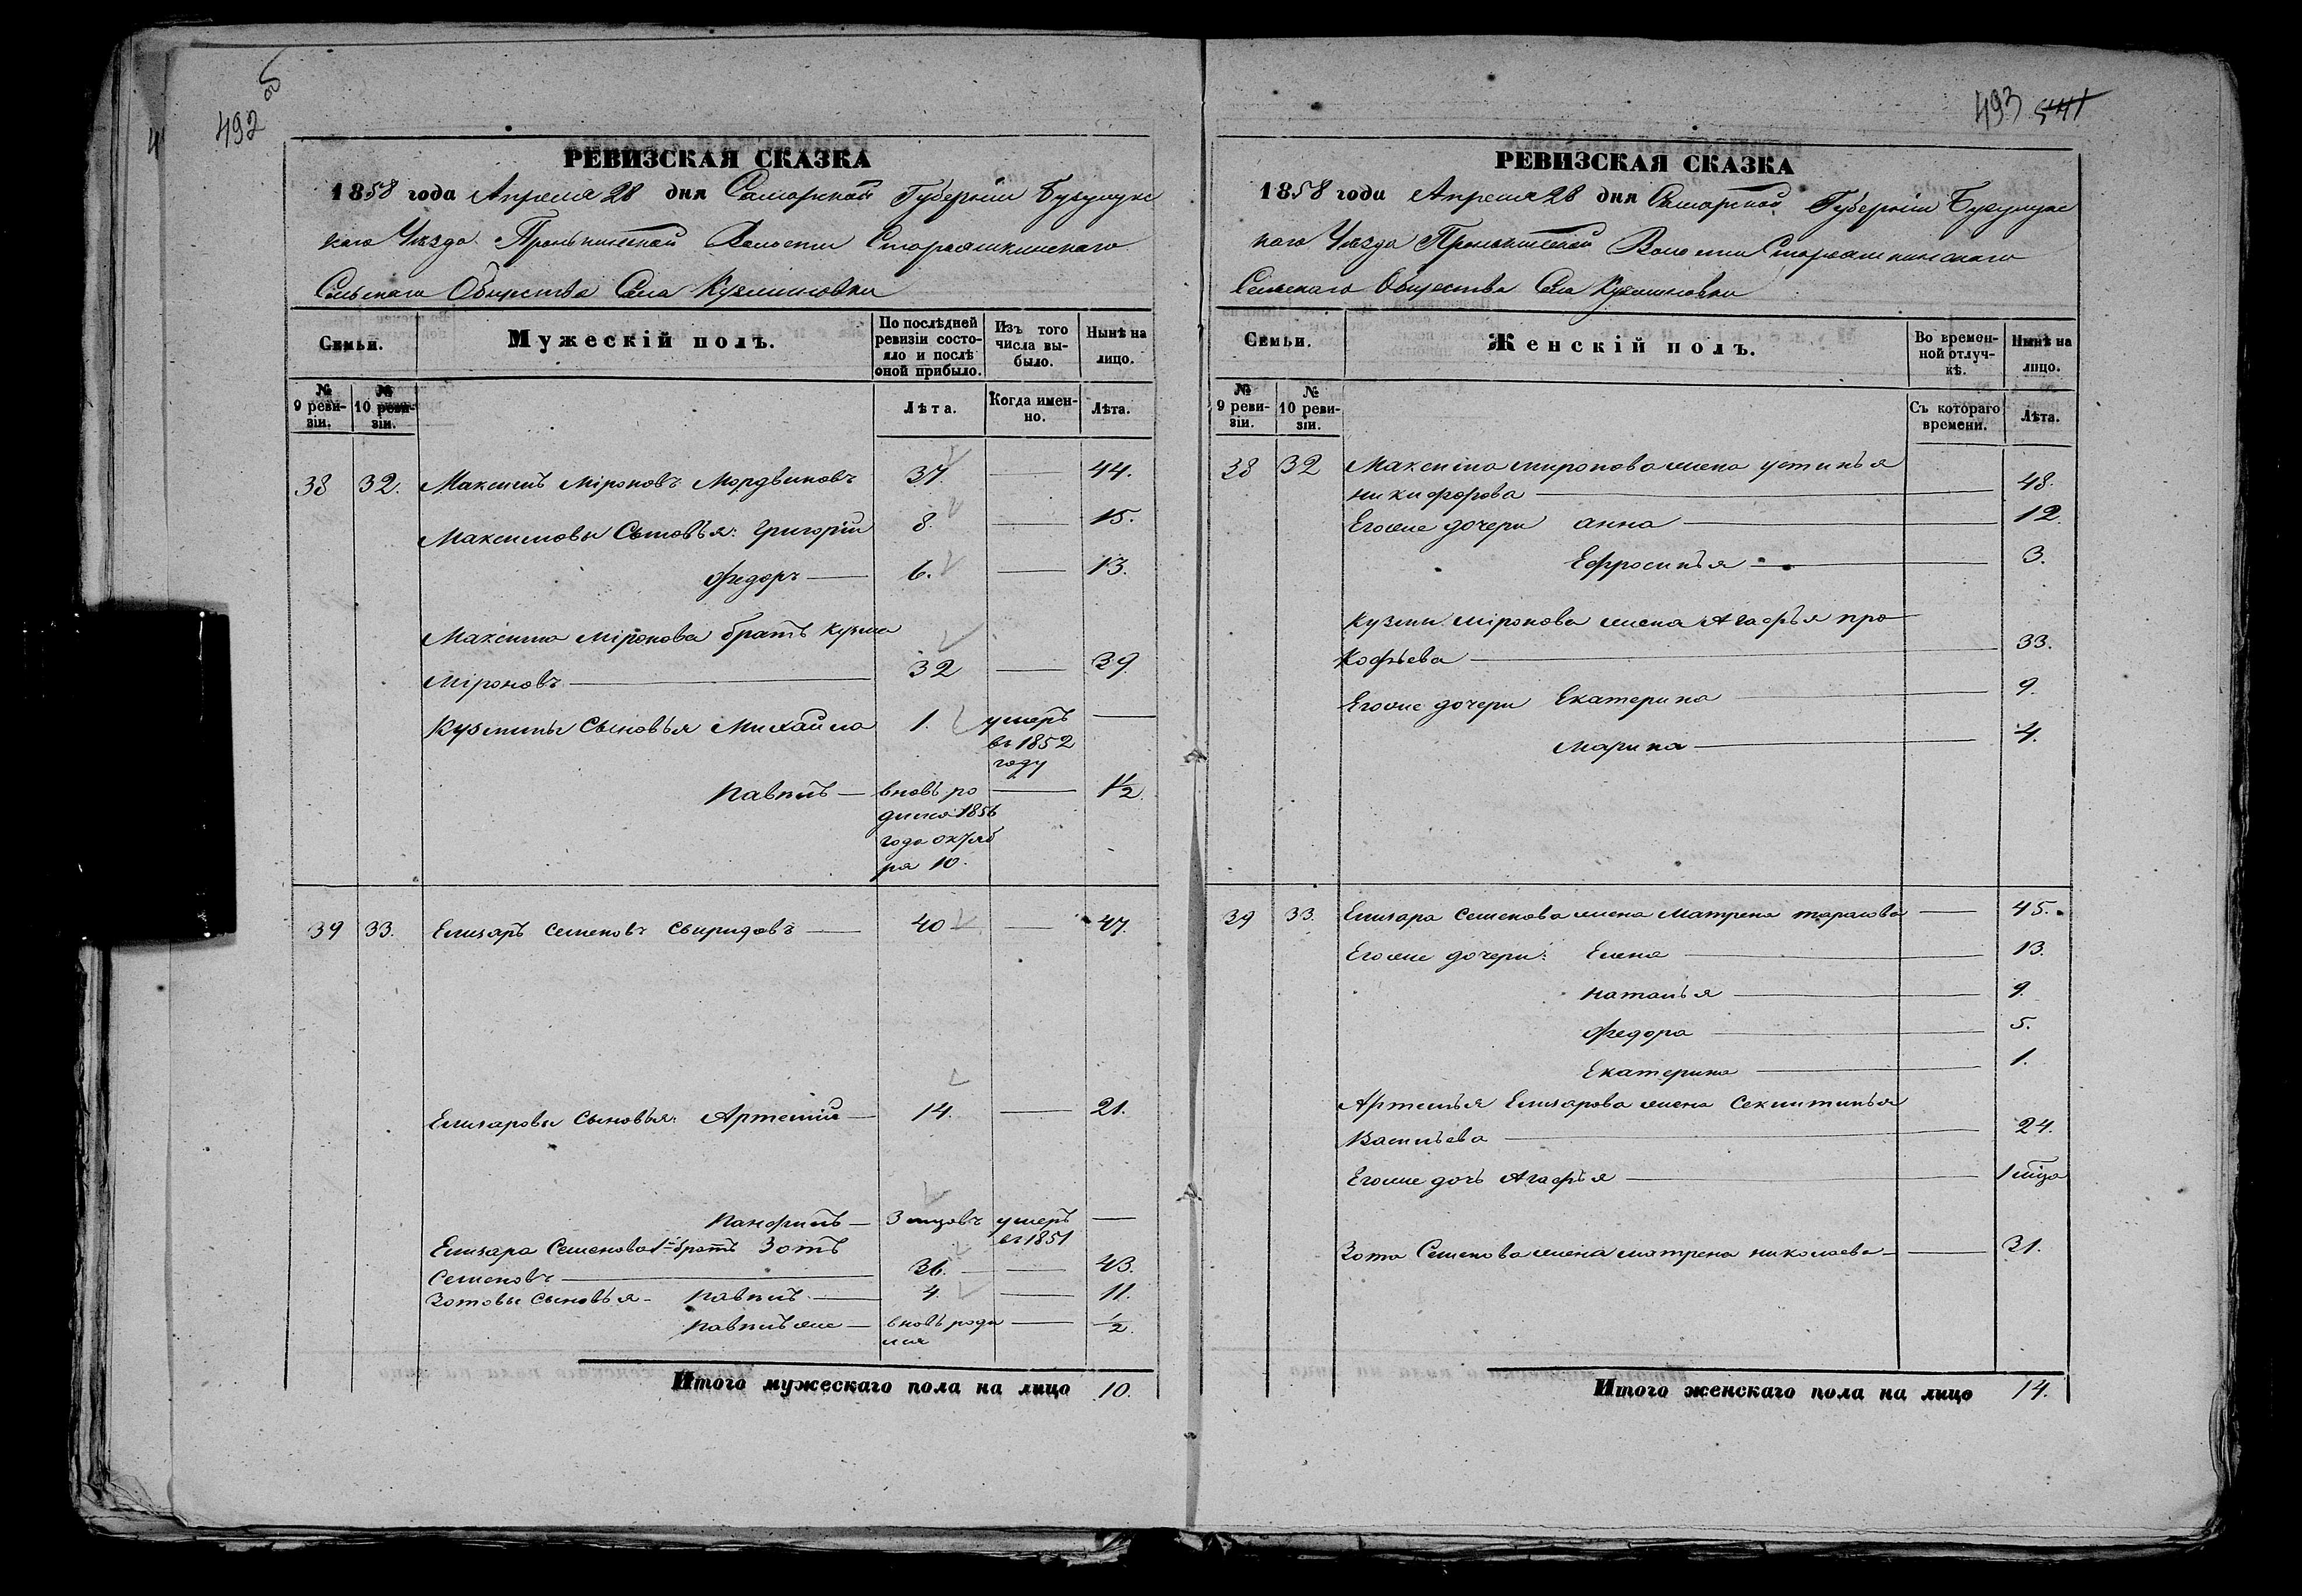 492 об
РЕВИЗСКАЯ СКАЗКА
1858 года Апреля 28 дня Самарской Губерніи Бузулукс
каго Уѣзда Пронькинской Волости Староашкинскаго
Сельскаго Общества Села Кузминовки
Семьи.
Мужескій полъ.
По послѣдней ревизіи состояло и послѣ оной прибыло.
Изъ того числа выбыло.
Нынѣ на лицо.
№ 9 ревизіи.
№ 10 ревизіи.
Лѣта.
Когда именно.
Лѣта.
38 32. Максимъ Міроновъ Мордвиновъ 37. — 44.
Максимовы Сыновья: Григорій 8. — 15.
Федоръ — 6. — 13.
Максима Міронова братъ Кузма
Міроновъ — 32 — 39.
Кузмины Сыновья Михайла 1. умеръ —
въ 1852
году
Павелъ — вновь ро — 1½.
дился 1856
года октяб
ря 10.
39 33. Елизаръ Семеновъ Свиридовъ — 40 — 47.
Елизаровы Сыновья: Артемій — 14. — 21.
Панфилъ — 3 мцовъ умеръ —
въ 1851
Елизара Семенова 1й братъ Зотъ
Семеновъ — 36. — 43.
Зотовы Сыновья — Павелъ — 4. — 11.
Павелъ же — вновь роди — ½.
лся
Итого мужескаго пола на лицо 10.
493 541
РЕВИЗСКАЯ СКАЗКА
1858 года Апреля 28 дня Самарской Губерніи Бузулукс
каго Уѣзда Пронькинской Волости Староашкинскаго
Сельскаго Общества Села Кузминовки
Семьи.
Женскій полъ.
Во временной отлучкѣ.
Нынѣ на лицо.
№ 9 ревизіи.
№ 10 ревизіи.
Съ котораго времени.
Лѣта.
38 32 Максима Миронова жена Устинья
Никифорова — 48.
Его же дочери Анна — 12.
Ефросинья — 3.
Кузмы Міронова жена Агафья Про
кофьева — 33.
Его же дочери Екатерина — 9.
Марина — 4.
39 33. Елизара Семенова жена Матрена Тарасова — 45.
Его же дочери: Елена — 13.
Наталья — 9.
Федора — 5.
Екатерина — 1.
Артемья Елизарова жена Секлитинья
Васильева — 24.
Его же дочь Агафья — 1 мѣца
Зота Семенова жена Матрена Николаева — 31.
Итого женскаго пола на лицо 14.